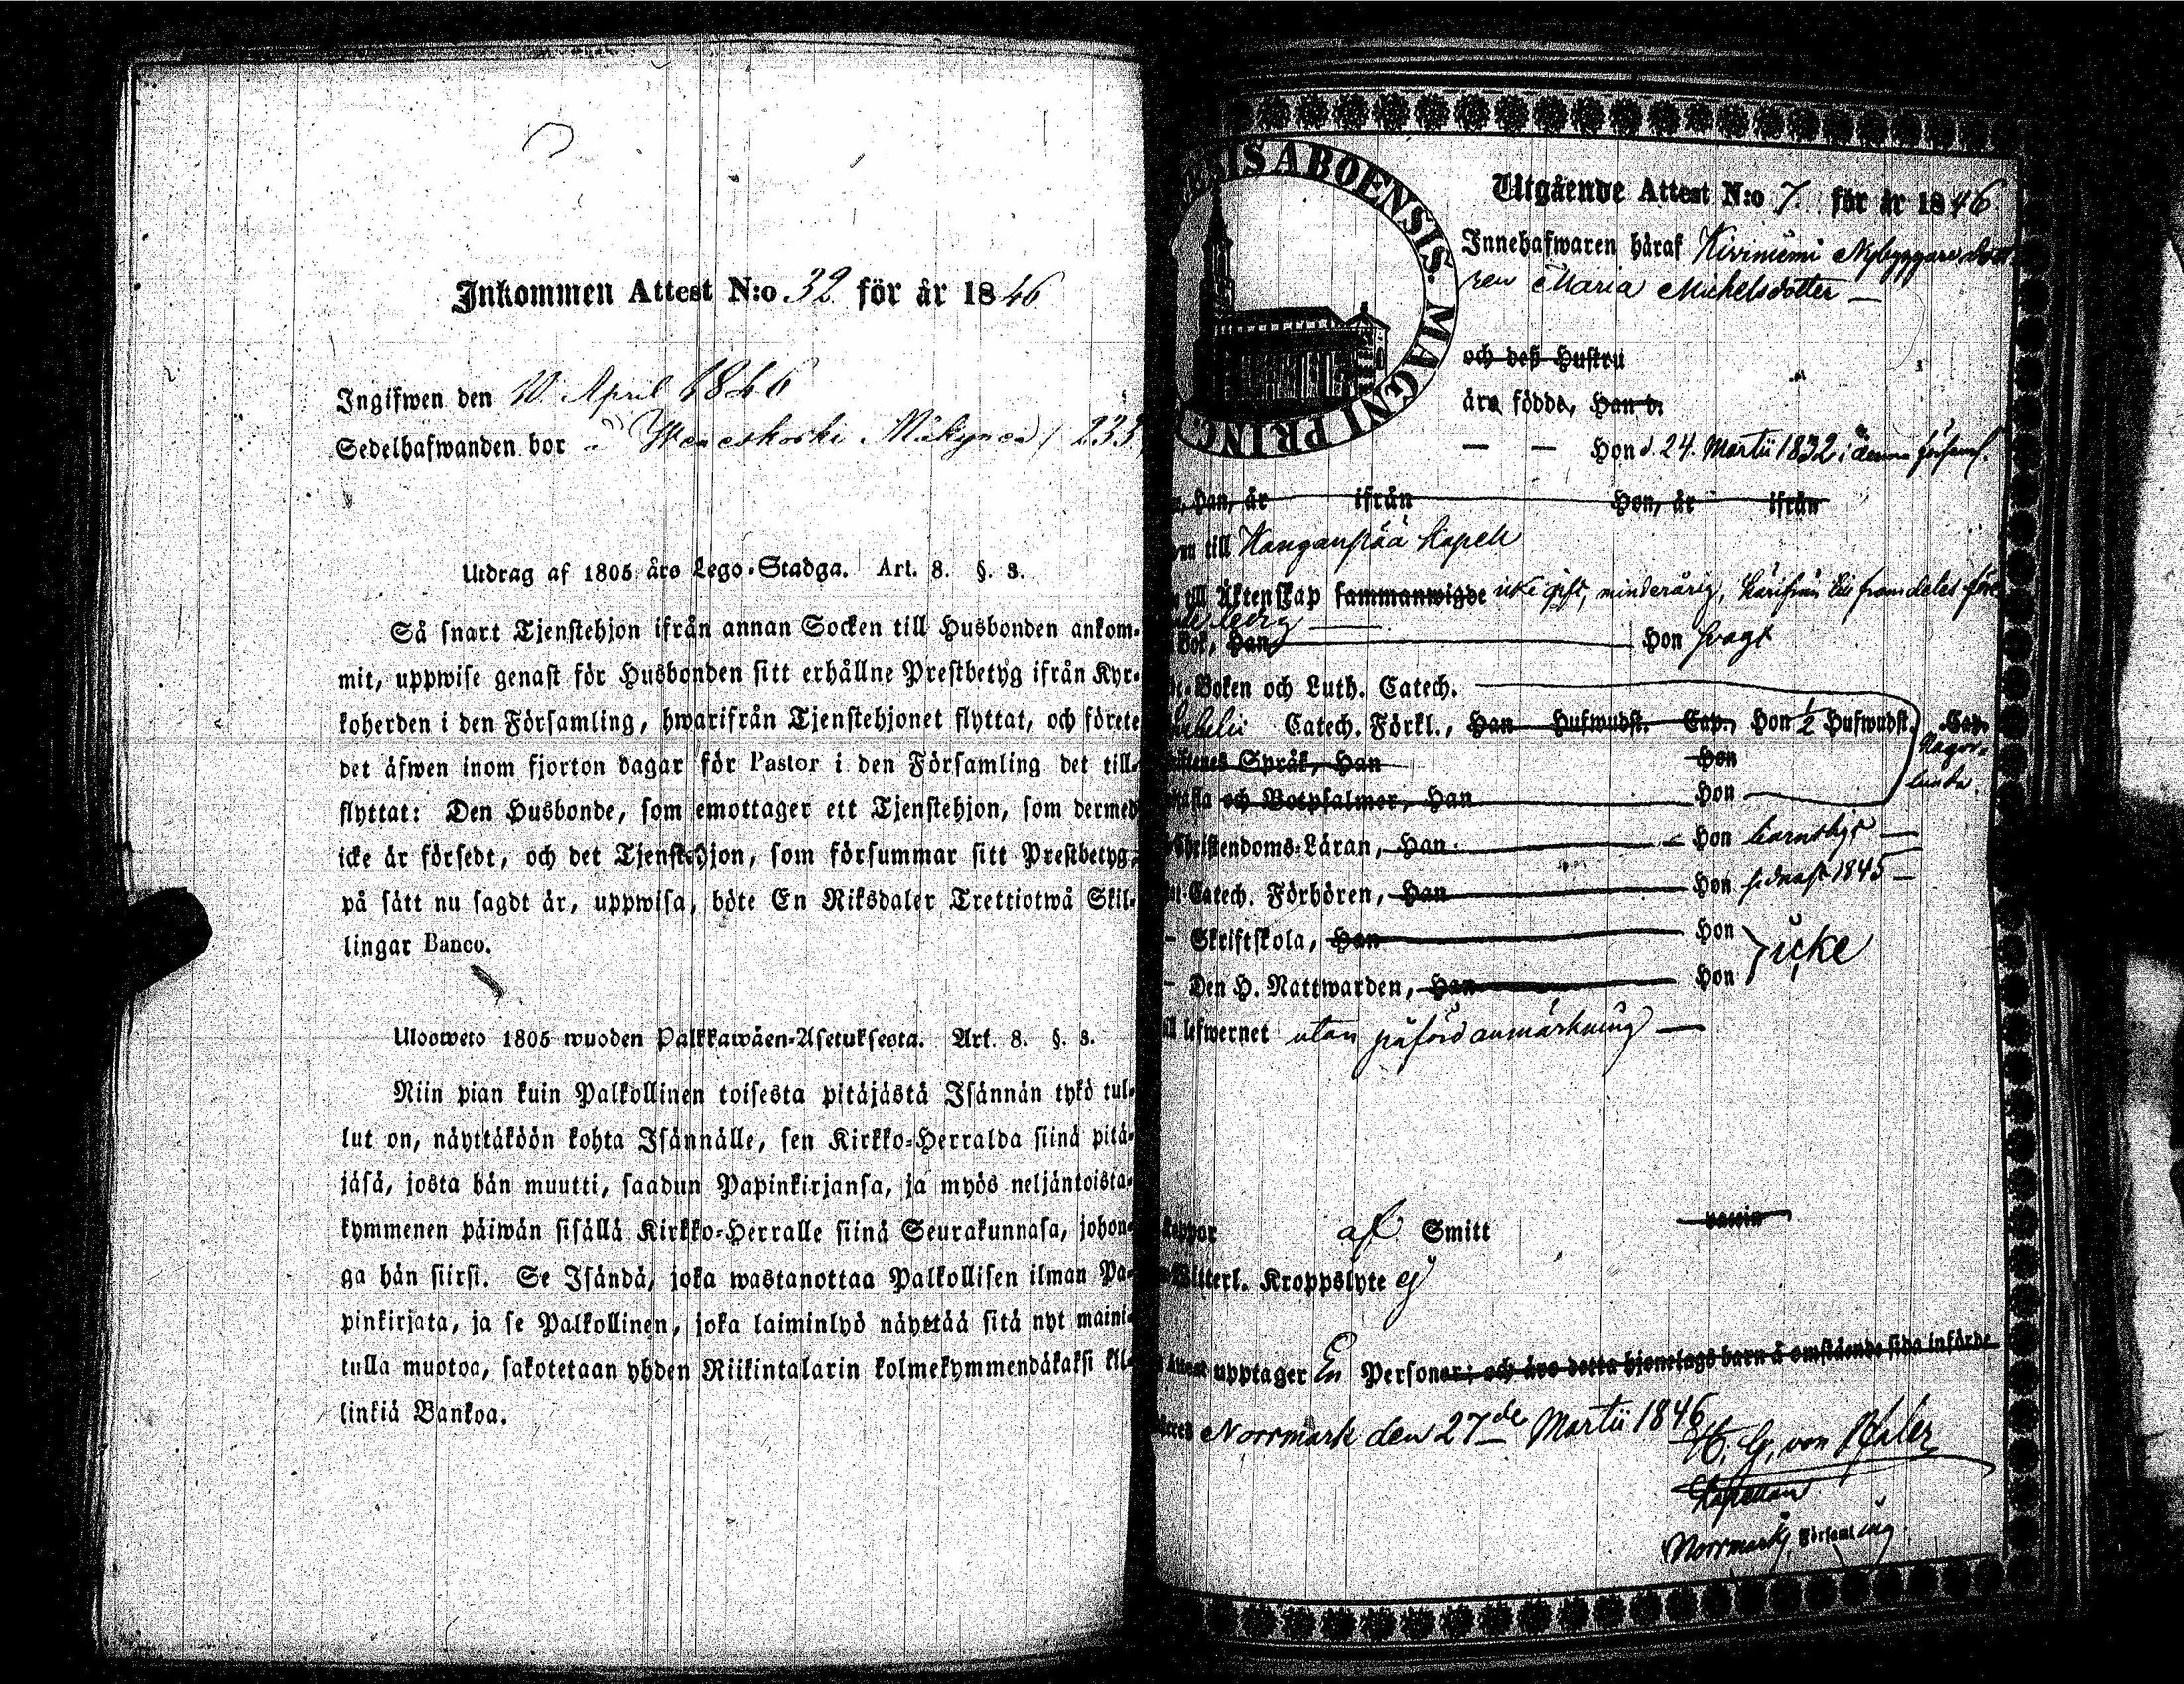 Inkommen Attest N:o 32 för år 1846
Ingifwen den 10 April 1846
Sedelhafwanden bor
Utdrag af 1805 års Lego-Stadga. Art. 8. §. 3.
Så snart Tjenstehjon ifrån annan Socken till Husbonden ankom-
mit, uppwise genast för Husbonden sitt erhållne Prestbetyg ifrån Kyr-
koherden i den Församling, hwarifrån Tjenstehjonet flyttat, och förete
det äfwen inom fjorton dagar för Pastor i den Församling det till-
flyttat: Den Husbonde, som emottager ett Tjenstehjon, som dermed
icke är försedt, och det Tjenstehjon, som försummar sitt Prestbetyg,
på sätt nu sagdt är, uppwisa, böte En Riksdaler Trettiotwå Skil-
lingar Banco.
Ulosweto 1805 wuoden Palkkawäen-Asetuksesta. Art. 8. §. 3.
Niin pian kuin Palkollinen toisesta pitäjästä Isännän tykö tul-
lut on, näyttäköön kohta Isännälle, sen Kirkko-Herralda siinä pitä-
jäsä, josta hän muutti, saadun Papinkirjansa, ja myös neljäntoista-
kymmenen päiwän sisällä Kirkko-Herralle siinä Seurakunnasa, johon-
ga hän siirsi. Se Isändä, joka wastanottaa Palkollisen ilman Pa-
pinkirjata, ja se Palkollinen, joka laiminlyö näyttää sitä nyt maini-
tulla muotoa, sakotetaan yhden Riikintalarin kolmekymmendäkaksi kil-
linkiä Bankoa.
ENSIS ABOENSIS. MAGNI PRINC
Utgående Attest N:o 7. för år 1846.
Innehafwaren häraf Kiviniemi Nybyggare dott
ren Maria Michelsdotter
och deß Hustru
äro födde, Han d.
Hon d. 24. Martii 1832 i denna förs.
Han, år ifrån Hon, år ifrån
till Kangansaa Kapell
till Äktenskap sammanwigde icke gift, minderårig, härifrån till framdeles före
ledig
Bok, Han Hon svagt
Boken och Luth. Catech.
Catech. Förkl., Han Hufwudst. Cap. Hon ½ Hufwudst. Cap.
Någor-
lunda.
Språk, Han Hon
och Botpsalmer, Han Hon
Christendoms-Läran, Han Hon barnsligt
Catech. Förhören, Han Hon sednast 1845
Skriftskola, Han Hon
icke
Den H. Nattwarden, Han Hon
lefwernet utan påförd anmärkning
koppor af Smitt vaccin
Kroppslyte ej
upptager En Personer; och äro detta hjonelags barn å omstående sida införde
Norrmark den 27de Martii 1846
Kapellan
Norrmark Församling.